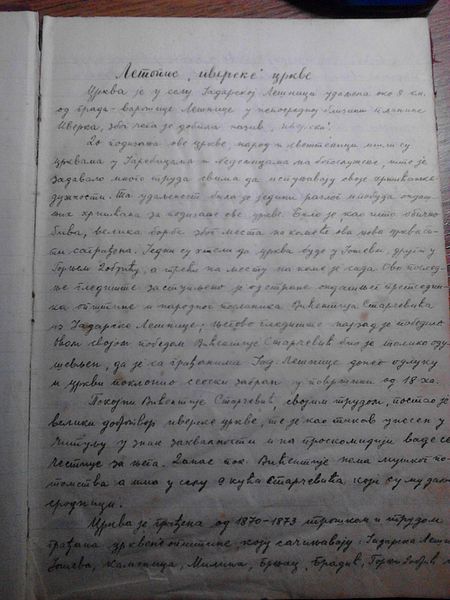 Летопис „иверске“ цркве
Црква је у селу Јадарској Лешници удаљена око 8 км.
од града-варошице Лешнице у непосредној близини планине
Иверка, због чега је добила назив „иверска“.
До подизања ове цркве, народ и свештеници ишли су
црквама у и на богослужење, што је
задавало много труда свима да испуњавају своје хришћанске
дужности. Та удаљеност била је једини разлог и побуда онда-
шњих хришћана за подизање ове цркве. Било је као што обично
бива, велика борба због места на коме ће ова нова црква би-
ти саграђена. Једни су хтели да црква буде у Јошеви, други у
Горњем Добрићу, а трећи на месту на коме је сада. Ово послед-
ње гледиште заступљено је од стране ондашњег председни-
ка општине и народног посланика Вићентија Старчевића
из Јадарске Лешнице; његово гледиште најзад је победило.
својом победом Вићентије Старчевић био је толико оду-
шевљен, да је са грађанима Јад. Лешнице донео одлуку
и цркви поклонио сеоски забран у површини од 18 ха.
Покојни Вићентије Старчевић, својим трудом, постао је
велики добротвор иверске цркве, те је као такав унесен у
читуљу у знак захвалности и на проскомидији ваде се
честице за њега. Данас пок. Вићентије нема мушког по-
томства а има у селу 9 кућа Старчевића који су му даљи
сродници.
Црква је грађена од 1870-1873 трошком и трудом
грађана црквене општине, коју сачињавају: Јадарска Лешни
Јошева, Каменица, Милина, Брњац, Брадић, Горњи Добрић